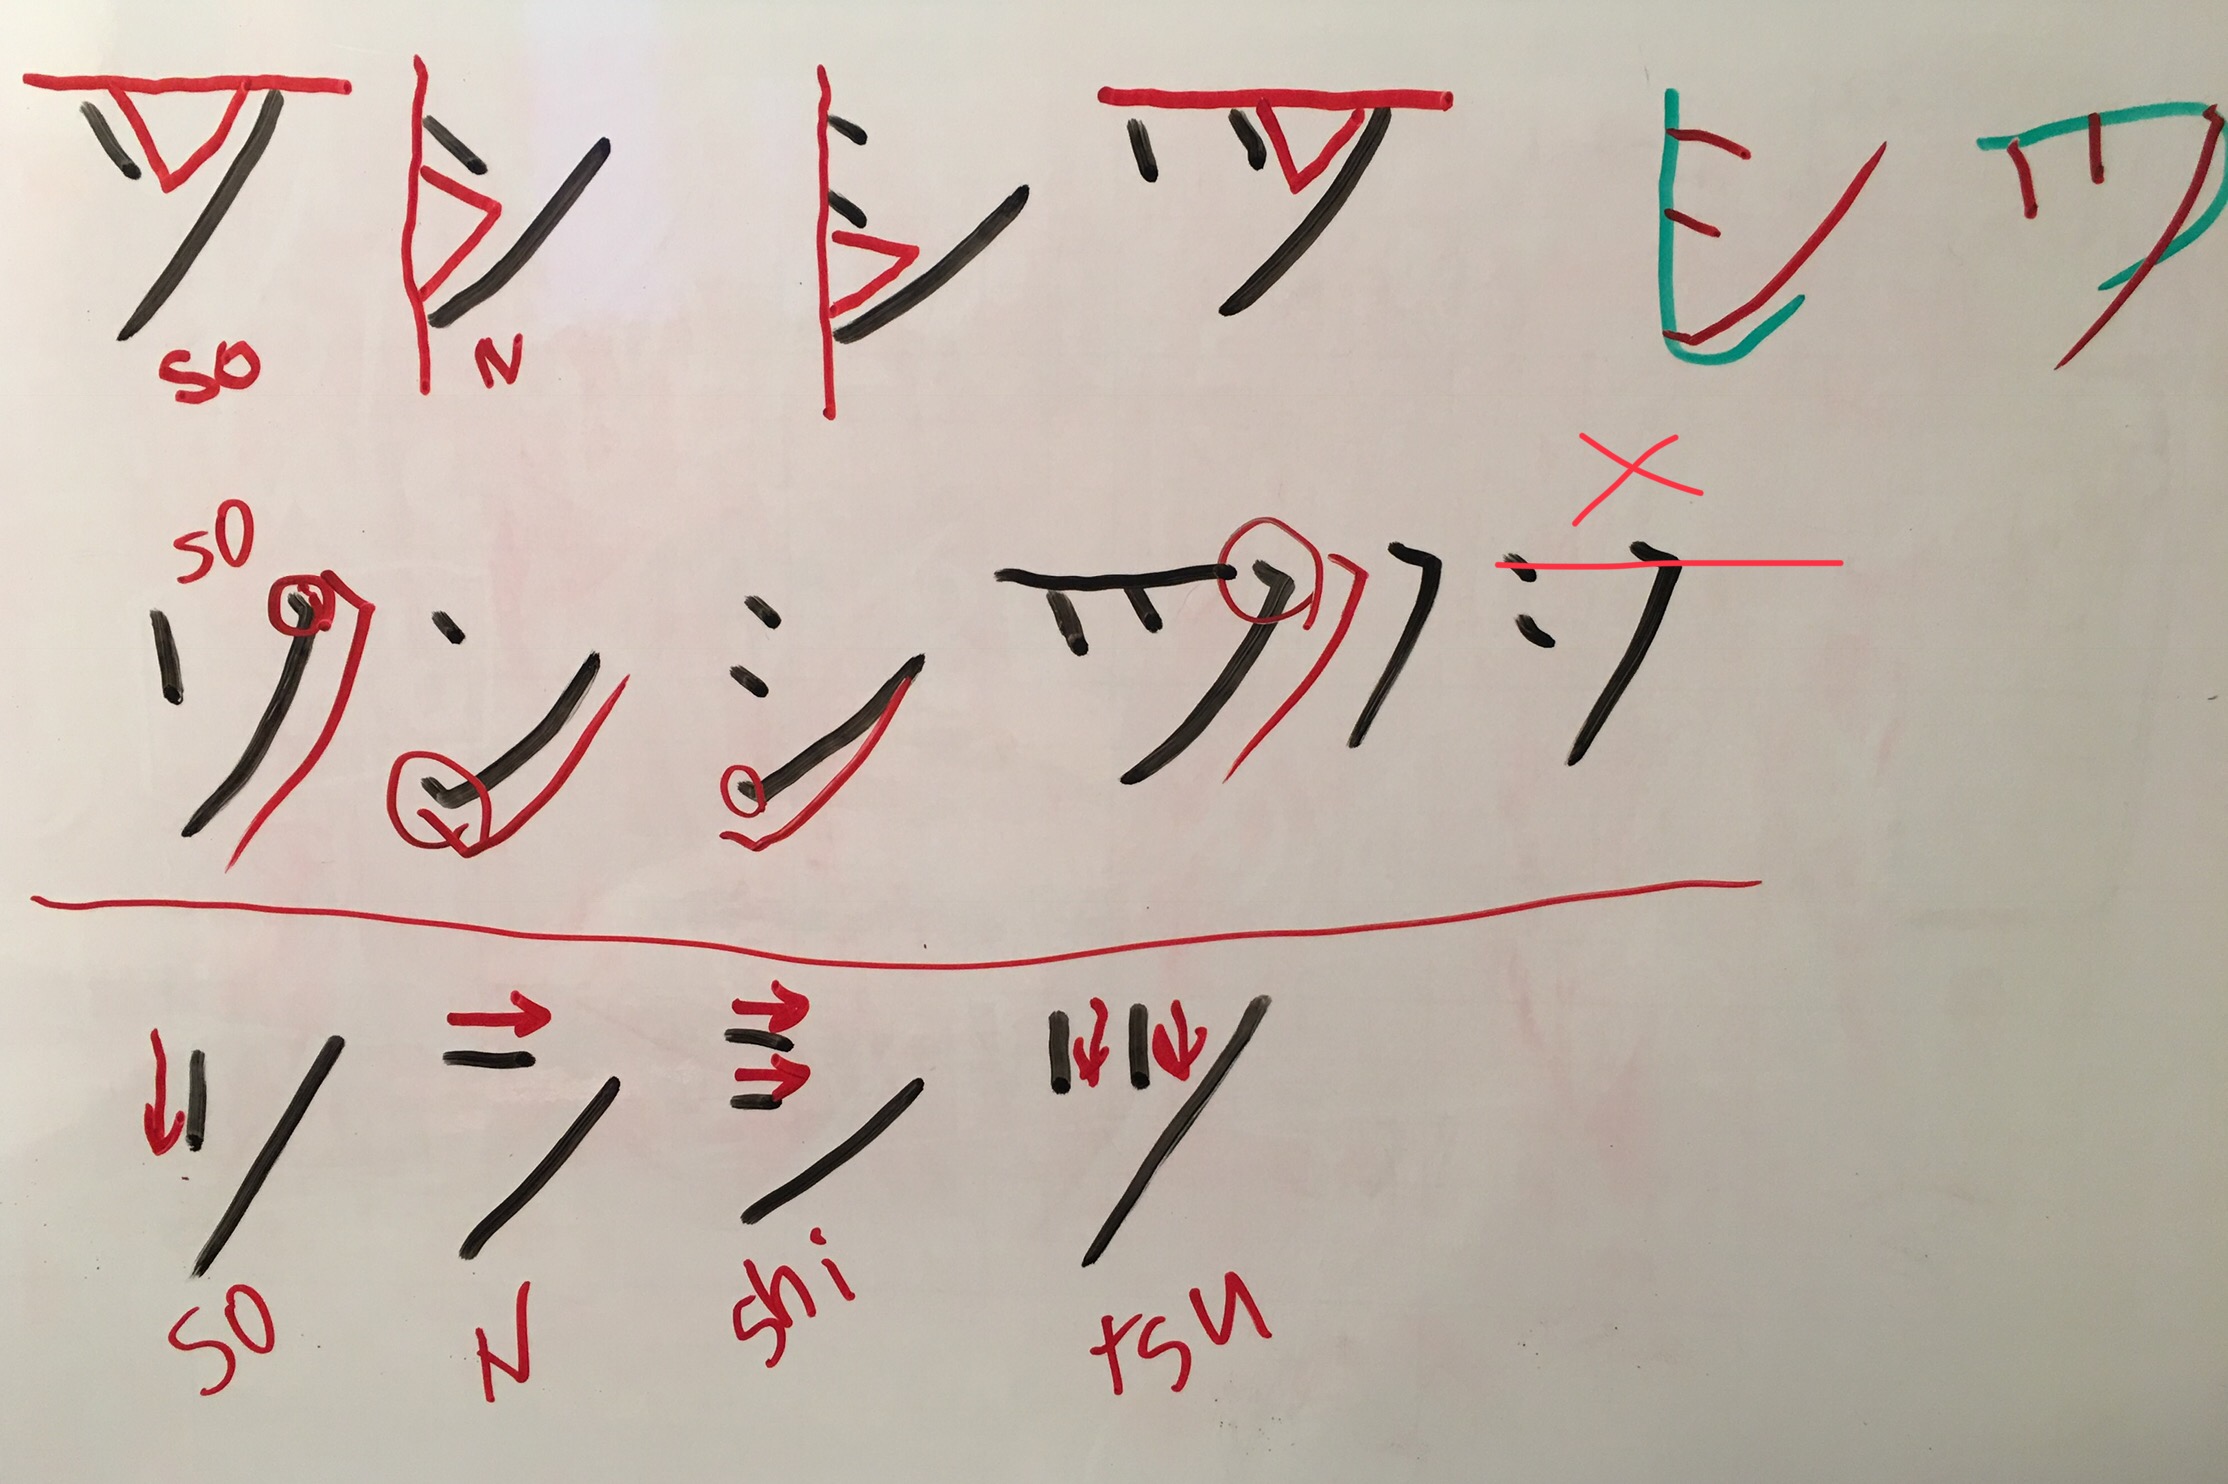 ソ ン シ ツ シ ツ
so N
so
ソ ン シ ツ
ソ ン シ ツ
so N shi tsu